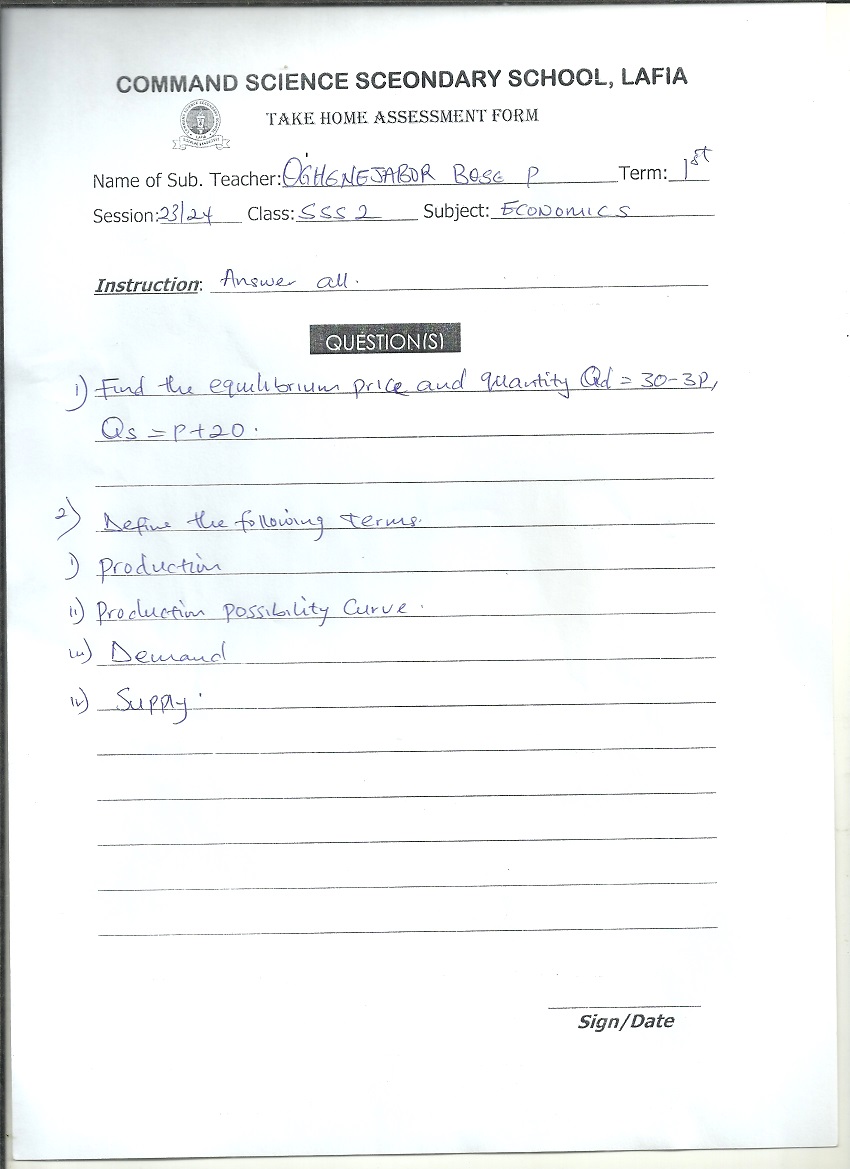 COMMAND SCIENCE SCEONDARY SCHOOL, LAFIA
TAKE HOME ASSESSMENT FORM
Name of Sub. Teacher: OGHENEJABOR BOSE P Term: 1st
Session: 23/24 Class: SSS 2 Subject: ECONOMICS
Instruction: Answer all.
QUESTION(S)
1) Find the equilibrium price and quantity Qd = 30-3P,
Qs = P+20.
2) Define the following terms.
i) Production
ii) Production possibility Curve.
iii) Demand
iv) Supply.
Sign/Date